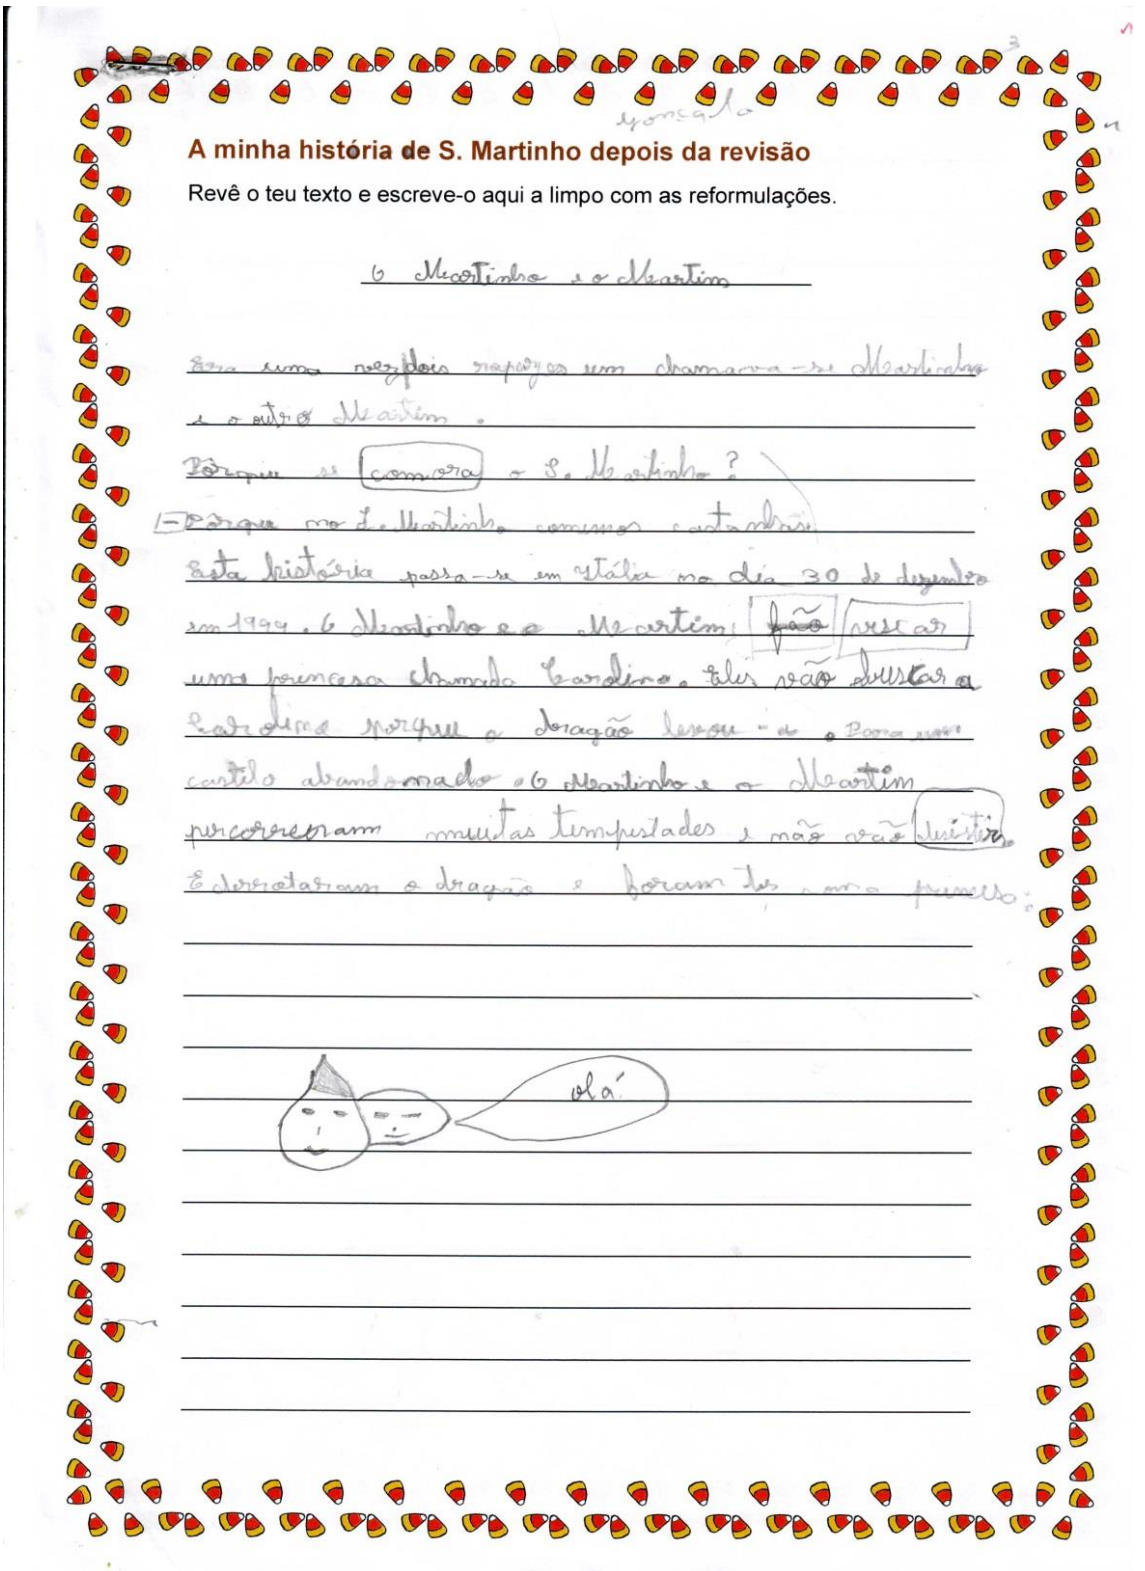 3
Gonçalo
A minha história de S. Martinho depois da revisão
Revê o teu texto e escreve-o aqui a limpo com as reformulações.
O Martinho e o Martim
Era uma vez dois rapazes um chamava-se Martinho
e o outro Martim.
Pôrque se comora o S. Martinho?
-Pôrque no S. Martinho comemos castanhas
Esta história passa-se em Itália no dia 30 de dezembro
em 1999. O Martinho e o Martim vão
uma princesa chamada Carolina. Eles vão buscar a
Carolina porque o dragão levou-a. Para um
castelo abandonado. O Martinho e o Martim
percorreram muitas tempestades e não vão desistir.
E derrotaram o dragão e foram com a princesa.
olá!